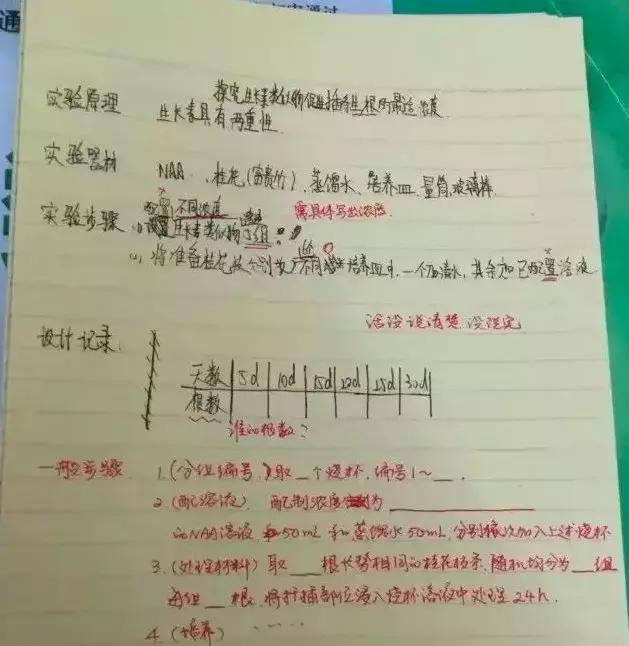 通
探究生长素类似物促进插条生根的最适浓度
实验原理 生长素具有两重性
实验器材
NAA、桂花(富贵竹)、蒸馏水、培养皿、量筒、玻璃棒
实验步骤 配置不同浓度 需具体写出浓度
(1) 生长素类似物 5组
(2) 将准备桂花枝分别放 不同 培养皿中,一个加清水,其余加已配置溶液
话没说清楚 没说完
设计记录
天数 5d 10d 15d 20d 25d 30d
根数
谁的根数?
一般步骤 1.(分组编号)取__个烧杯,编号1~__.
2.(配溶液) 配制浓度 为______
的NAA溶液 50mL 和蒸馏水50mL,分别依次加入上述烧杯
3.(处理材料)取__根长势相同的桂花枝条,随机均分为__组
每组__根,将扦插部位浸入烧杯溶液中处理24h.
4.(培养) ……